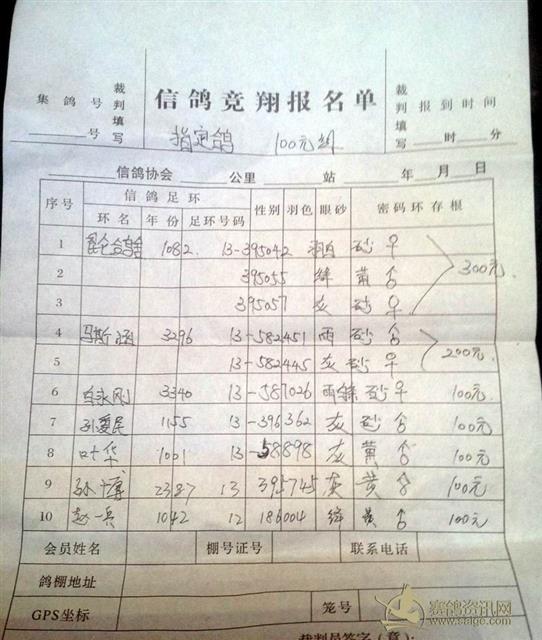 集鸽号 裁判填写 信鸽竞翔报名单 裁判填写 报到时间
号 指定鸽 100元组 时 分
信鸽协会 公里 站 年 月 日
序号 信鸽足环 性别 羽色 眼砂 密码环存根
环名 年份 足环号码
1 昆仑鸽舍 1082. 13-395042 砂 ♀
2 395055 绛 黄 ♂ 300元
3 395057 灰 砂 ♀
4 马斯涵 3296 13-582451 雨 砂 ♂
5 13-582445 灰 砂 ♀ 200元
6 永刚 3340 13-587026 雨 砂 ♀ 100元
7 孙爱民 1155 13-396362 灰 砂 ♂ 100元
8 叶华 1001 13-58898 灰 黄 ♂ 100元
9 孙 2387 13 395745 灰 黄 ♂ 100元
10 赵一兵 1042 12 186004 绛 黄 ♂ 100元
会员姓名 棚号证号 联系电话
鸽棚地址
GPS坐标 笼号
裁判员签字(章):
赛鸽资讯网
www.saige.com